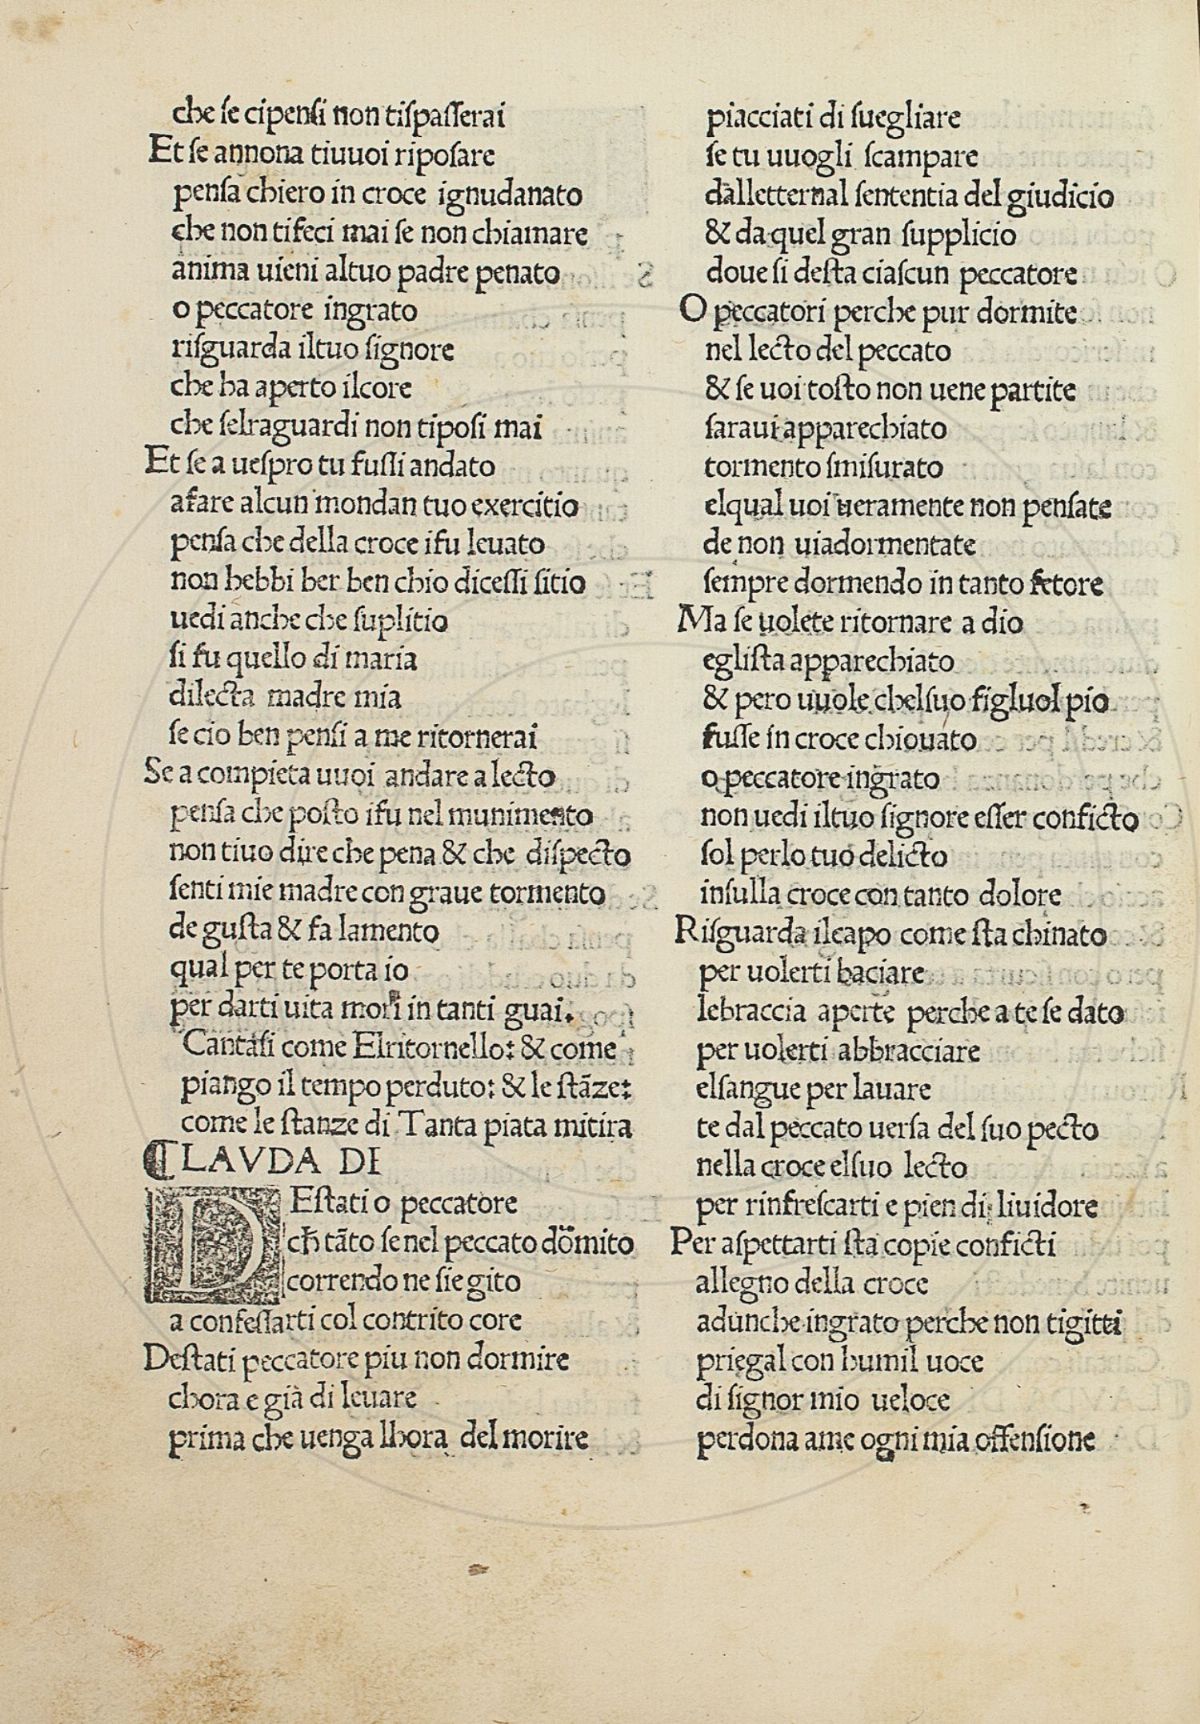 che se cipensi non tispasserai
Et se annona tiuuoi riposare
pensa chiero in croce ignudanato
che non tifeci mai se non chiamare
anima uieni altuo padre penato
o peccatore ingrato
risguarda iltuo signore
che ha aperto ilcore
che selraguardi non tiposi mai
Et se a uespro tu fussi andato
afare alcun mondan tuo exercitio
pensa che della croce ifu leuato
non hebbi ber ben chio dicessi sitio
uedi anche che suplitio
si fu quello di maria
dilecta madre mia
se cio ben pensi a me ritornerai
Se a compieta uuoi andare a lecto
pensa che posto ifu nel munimento
non tiuo dire che pena & che dispecto
senti mie madre con graue tormento
de gusta & fa lamento
qual per te porta io
per darti uita mori in tanti guai.
Cantasi come Elritornello: & come
piango il tempo perduto: & le stāze:
come le stanze di Tanta piata mitira
¶LAVDA DI
DEstati o peccatore
cħ tāto se nel peccato dōmito
correndo ne sie gito
a confessarti col contrito core
Destati peccatore piu non dormire
chora e già di leuare
prima che uenga lhora del morire
piacciati di suegliare
se tu uuogli scampare
dalletternal sententia del giudicio
& da quel gran supplicio
doue si desta ciascun peccatore
O peccatori perche pur dormite
nel lecto del peccato
& se uoi tosto non uene partite
saraui apparechiato
tormento smisurato
elqual uoi ueramente non pensate
de non uiadormentate
sempre dormendo in tanto fetore
Ma se uolete ritornare a dio
eglista apparechiato
& pero uuole chelsuo figluol pio
fusse in croce chiouato
o peccatore ingrato
non uedi iltuo signore esser conficto
sol perlo tuo delicto
insulla croce con tanto dolore
Risguarda ilcapo come sta chinato
per uolerti baciare
lebraccia aperte perche a te se dato
per uolerti abbracciare
elsangue per lauare
te dal peccato uersa del suo pecto
nella croce elsuo lecto
per rinfrescarti e pien di liuidore
Per aspettarti sta copie conficti
allegno della croce
adunche ingrato perche non tigitti
priegal con humil uoce
di signor mio ueloce
perdona ame ogni mia offensione